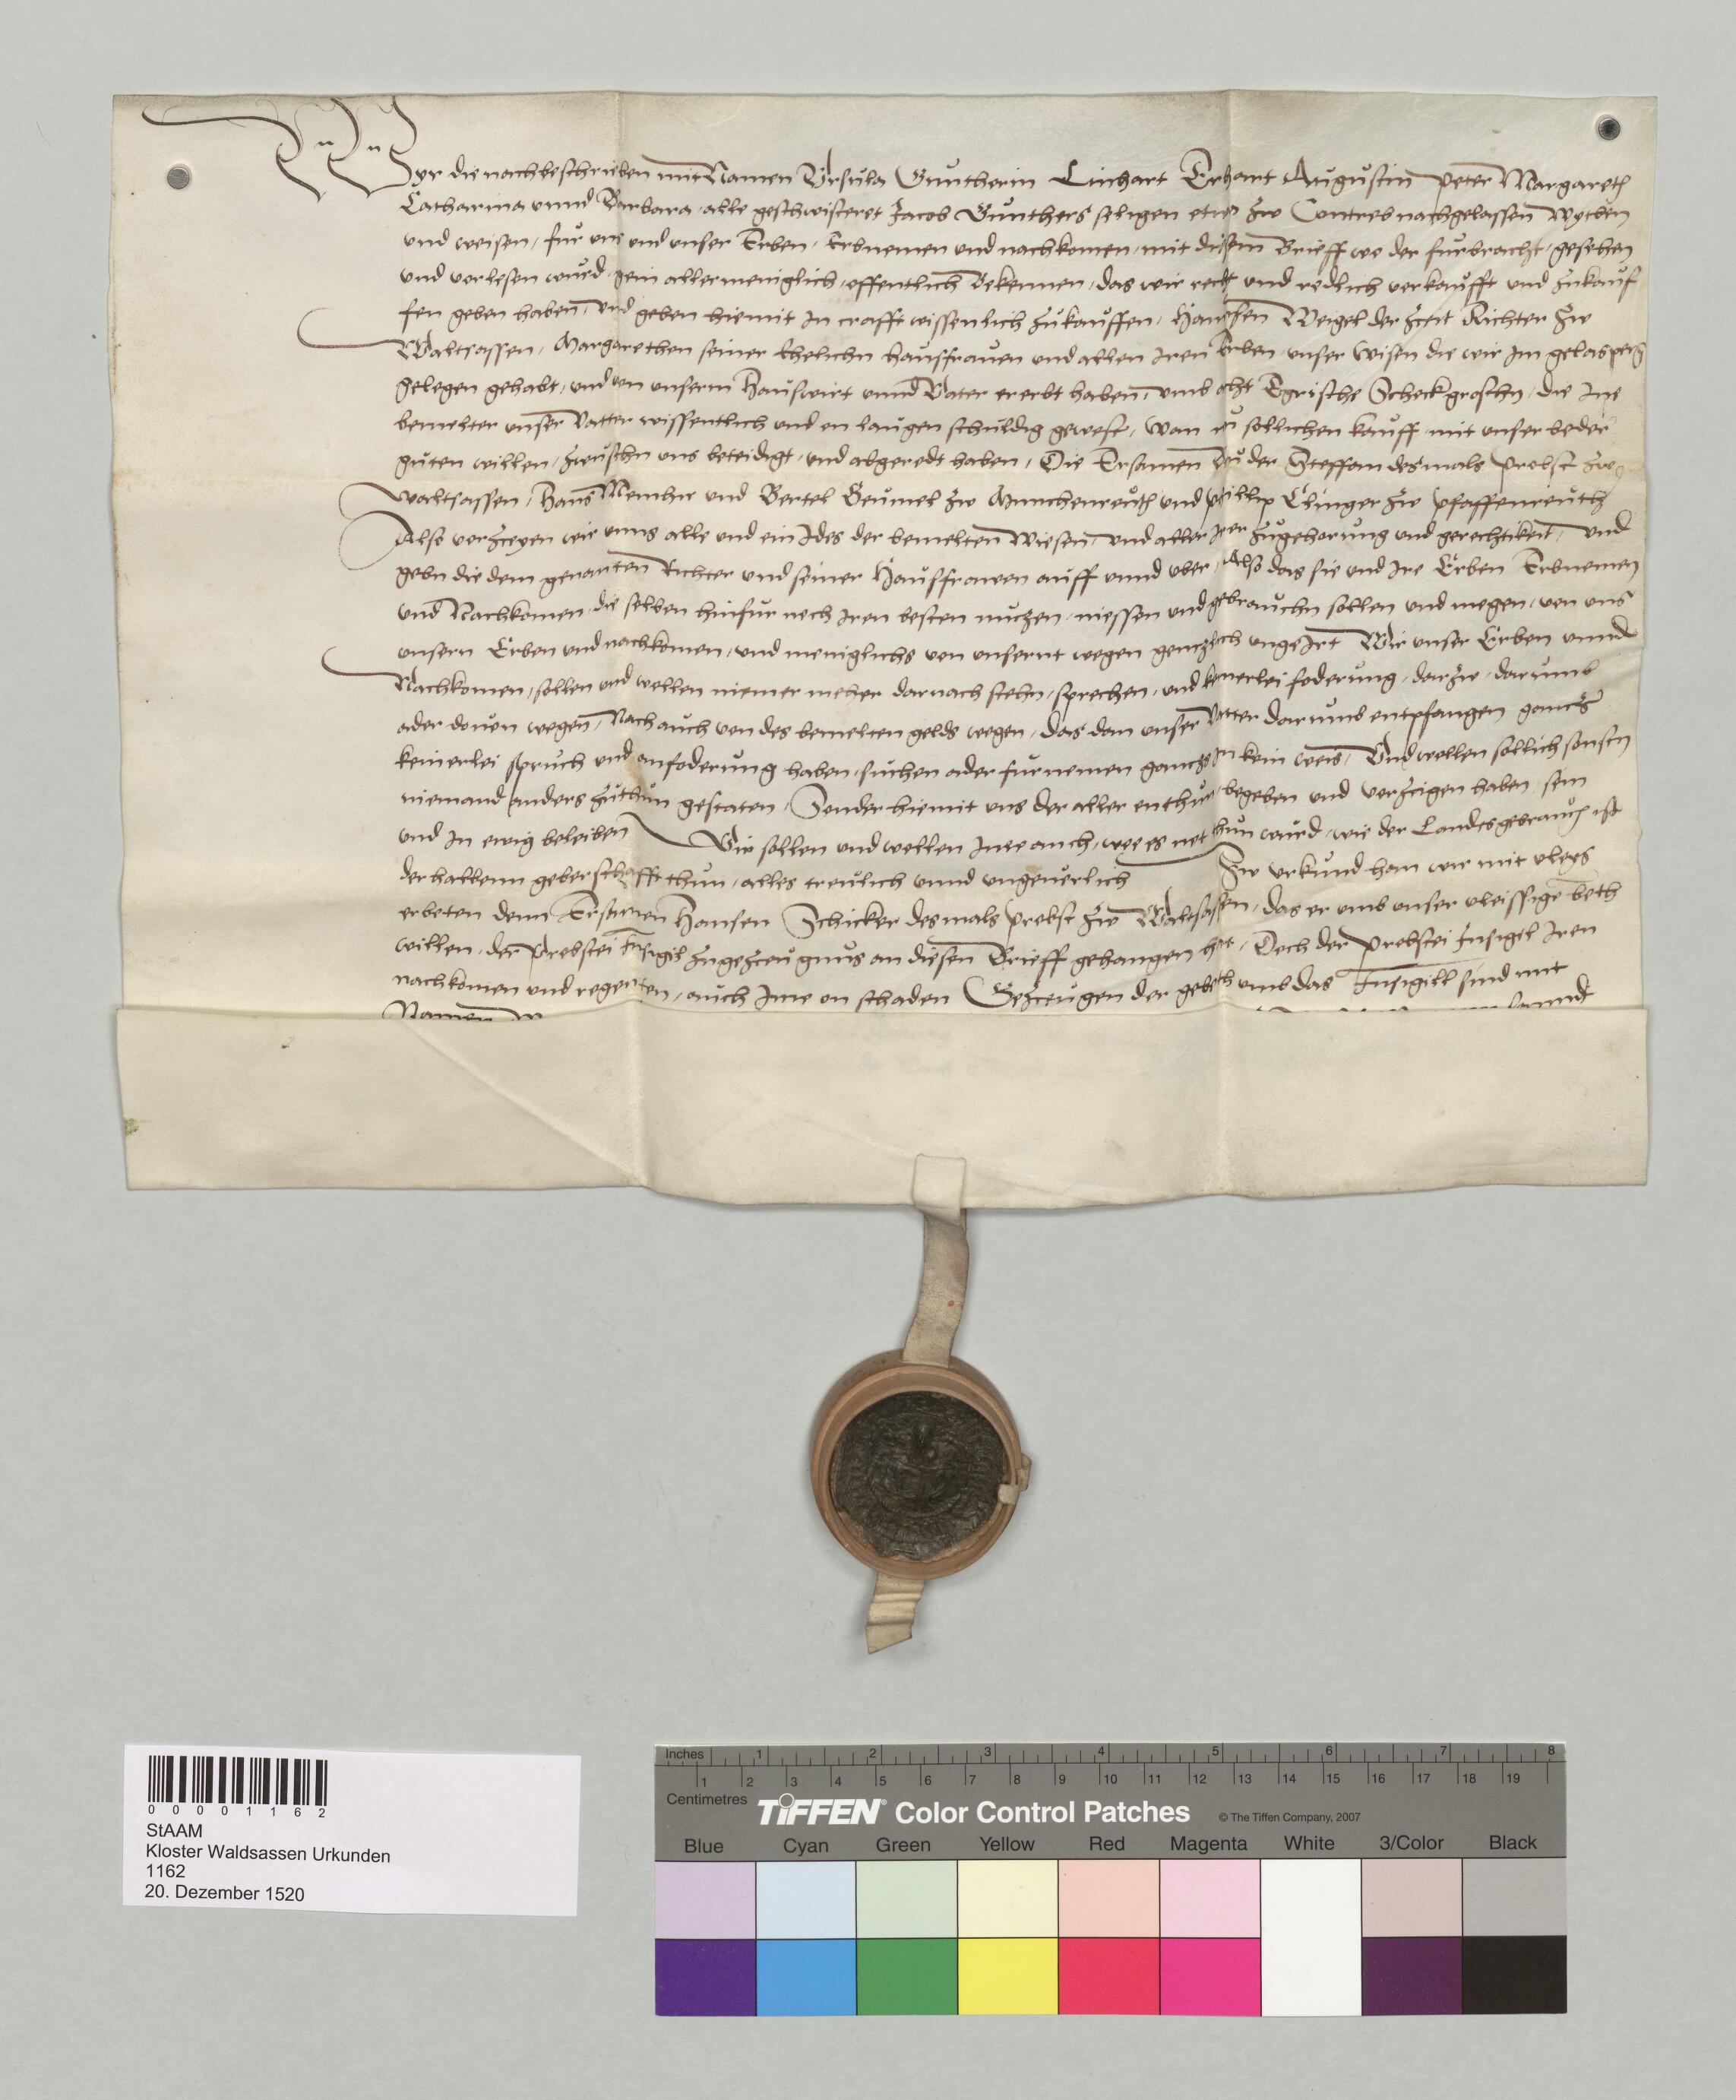 Wyr die nachbeschrieben mit Namen Ursula Guntherin Linhart Erhart Augustin Peter Margareth
Catharina unnd Barbara alle geschwisteret Jacob Gunthers seligen etwo zw Contreb nachgelassen wytben
und weisen, fur uns und unser Erben, Erbnemen und nachkomen, mit disem Brieff wo der furbracht, gesehen
und verlesen wurd, gein allermeniglich, offentlich Bekennen, das wir recht und redlich verkaufft und zukauf
fen geben haben, und geben hiemit in crafft wissenlich zukauffen, Hannsen Weigel der zceit Richter zw
Waltsassen, Margarethen seiner Ehelichn hausfrauen und allen iren Erben, unser wisen die wir im gelasperg
gelegen gehabt, und von unserm Hauswirt unnd Vater ererbt haben, umb acht Egrische Scheckgroschn, die ine
bemelter unser Vatter wissentlich und on laugen schuldig gewest, wan sollichen kauff mit unser beder
guten willen, zwuschn uns beteidigt, und abgeredt haben, Die Ersamen bruder Steffan desmals Probst zw
Waltsassen, Hans Memhir und Bertel Beumel zw Munchenreuth und Phillip Clinger zw Pfaffenreuth
Also verzceyen wir unns alle und ein ides der bemelten Wiesen, und aller irer zugehorung und gerechtikeit, und
gebn die dem genanten Richter und seiner Hausfrawen auff unnd uber, Also das sie und ire Erben Erbnemen
und Nachkomen, die selben hinfur nach iren besten nuczen, niessen und gebrauchn sollen und megen, von uns
unsern Erben und nachkomen, und meniglichs von unsernt wegen genczlich ungeirt Wir unser Erben unnd
Nachkomen, sollen und wellen niemer meher darnach stehn, sprechen, und keinerlei foderung, darzw, darumb
ader dovon wegen, Nach auch von des bemelten gelds wegen, das dan unser Vatter darumb entpfangen gancz
keinerlei spruch und anfoderung haben, suchen ader furnemen gancz in kein weis, Und wellen sollich sonsten
niemand anders zuthun gestaten, Sonder hiemit uns der aller enthun, begeben und verzcigen haben, sein
und in ewig beleiben Wir sollen und wellen inee auch, wee es not thun wurd, wie der Landesgebrauch ist
derhalbenn geberschafft thun, alles treulich unnd ungeverlich Zw urkund han wir mit vleys
erbeten denn Ersamen Hansen Schicker desmals Probst zw Waltsassen, das er umb unser vleissige beth
willen, der Probstei Insigil zugezceugnus an diesen Brieff gehangen hat, Doch der Probstei Insigil iren
nachkomen und regenten, auch ime on schaden Gezceugen der gebeth umb das Insigill sind mit
Namen
StAAM
Kloster Waldsassen Urkunden
1162
20. Dezember 1520
0 0 0 0 1 1 6 2
Inches 1 2 3 4 5 6 7 8
1 2 3 4 5 6 7 8 9 10 11 12 13 14 15 16 17 18 19
Centimetres
TIFFEN® Color Control Patches © The Tiffen Company, 2007
Blue Cyan Green Yellow Red Magenta White 3/Color Black